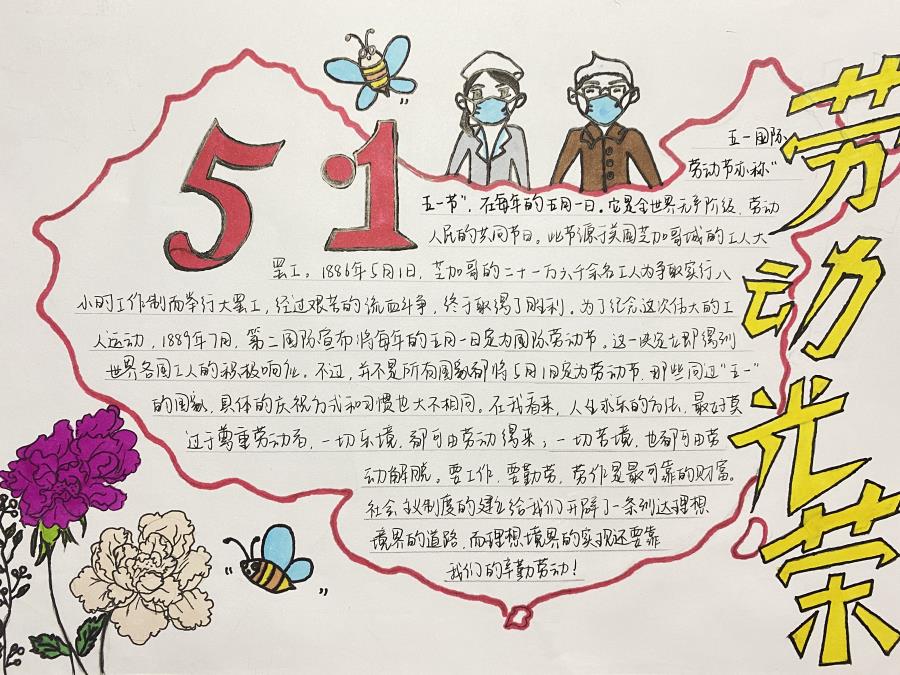 5·1
劳动光荣
五一国际
劳动节亦称“
五一节”，在每年的五月一日。它是全世界无产阶级、劳动
人民的共同节日。此节源于美国芝加哥城的工人大
罢工。1886年5月1日，芝加哥的二十一万六千余名工人为争取实行八
小时工作制而举行大罢工，经过艰苦的流血斗争，终于取得了胜利。为了纪念这次伟大的工
人运动，1889年7月，第二国际宣布将每年的五月一日定为国际劳动节。这一决定立即得到
世界各国工人的积极响应。不过，并不是所有国家都将5月1日定为劳动节，那些同过“五一”
的国家，具体的庆祝方式和习惯也大不相同。在我看来，人生求乐的方法，最好莫
过于尊重劳动。一切乐境，都可由劳动得来；一切苦境，也都可由劳
动解脱。要工作，要勤劳，劳作是最可靠的财富。
社会主义制度的建立给我们开辟了一条到达理想
境界的道路，而理想境界的实现还要靠
我们的辛勤劳动！